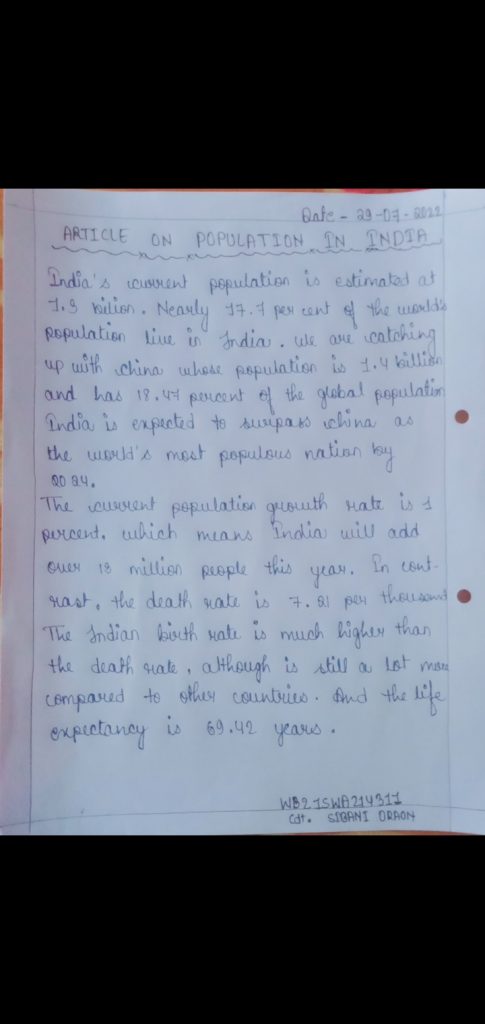 Date - 29-07-2022
ARTICLE ON POPULATION IN INDIA
India's current population is estimated at
1.3 bilion. Nearly 17.7 per cent of the world's
population live in India. we are catching
up with china whose population is 1.4 billion
and has 18.47 percent of the global population
India is expected to surpass china as
the world's most populous nation by
2024.
The current population growth rate is 1
percent, which means India will add
over 13 million people this year. In cont-
rast, the death rate is 7.21 per thousand
The Indian birth rate is much higher than
the death rate, although is still a lot more
compared to other countries. And the life
expectancy is 69.42 years.
WB21SWA214311
Cdt. SIBANI ORAON